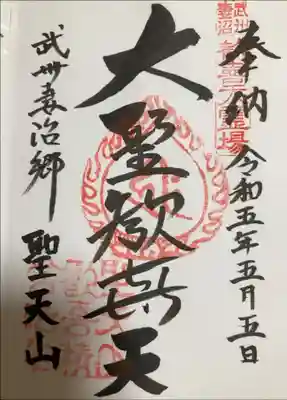 奉納 令和五年五月五日
大聖歓喜天
武州妻沼郷 聖天山